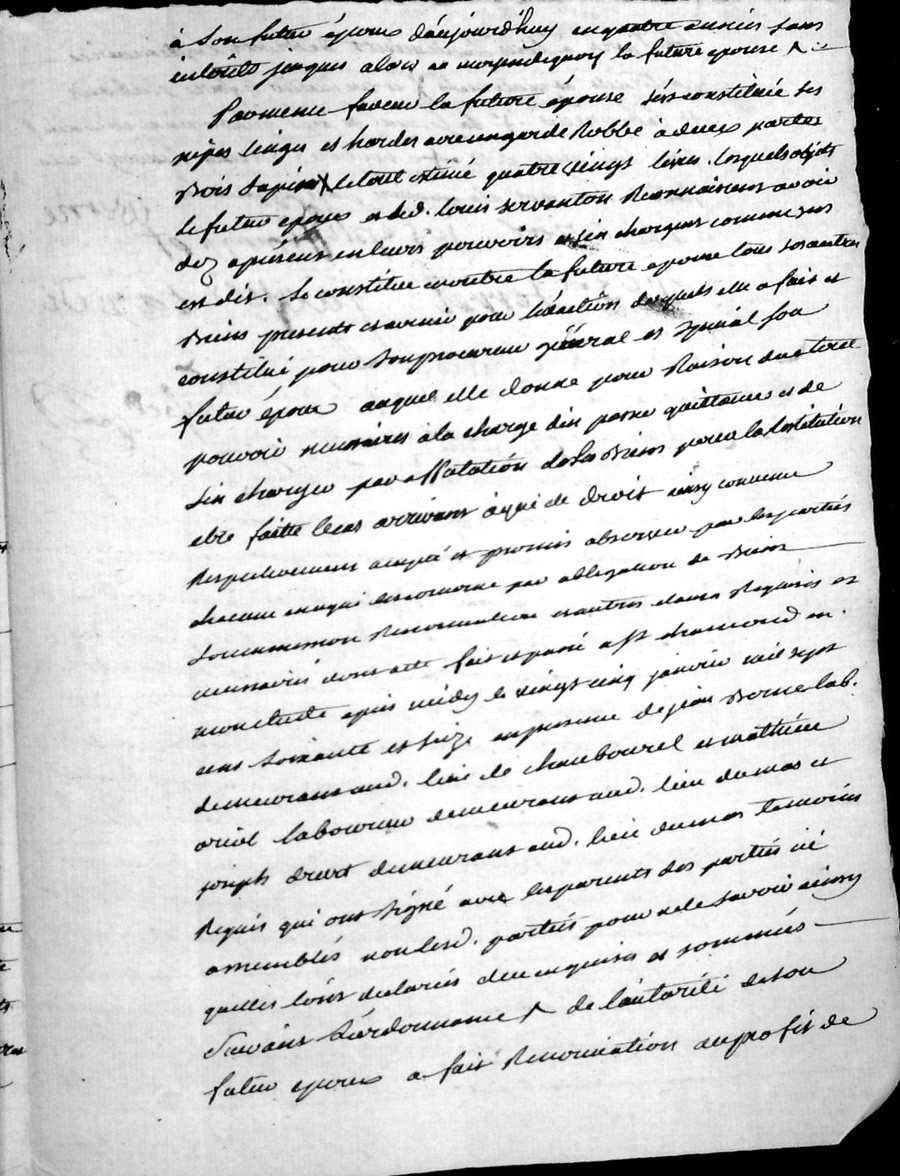 à son futur époux d'aujourd'huy en quatre années sans
intérêts jusques alors au moyen dequoy la future epouse ⁁
Par meme faveur la future épouse s'est constituée ses
nipes linges et hardes avec un garde Robbe à deux portes
Bois sapin le tout estimé quatre vingt livres lesquels objets
le futur epoux et led. Louis servanton Reconnaissent avoir
dez apresent en leurs pouvoirs et s'en chargent comme sus
est dit. Se constitue en outre la future epouse tous ses autres
Biens presents et avenir pour l'exaction desquels elle a fait et
constitué pour son procureur général et special son
futur époux auquel elle donne pour Raison de ce tous
pouvoirs necessaires a la charge d'en passer quittance et de
s'en charger par assatation de ses Biens pour la Restitution
etre faitte le cas arrivant à qui de droit ainsy convenu
Respectivement accepté et promis observer par les parties
chacune en ce qui les concerne par obligation de Biens
soumission Renonciation et autres clauses Requises et
necessaires dont acte fait et passé a st chamond en
mon etude apres midy le vingt cinq janvier mil sept
cent soixante et seize en presence de jean Berne lab.
demeurant aud. lieu de chaubourel et mathieu
oriol laboureur demeurant aud. lieu du mas et
joseph dreurt demeurant aud. lieu du mas temoins
Requis qui ont signé avec les parents des parties icé
assemblés non lesd. parties pour ne le savoir ainsy
quelles l'ont declarées de ce enquises et sommées
suivant l'ordonnance ⁁ de l'autorité de son
futur epoux a fait Renonciation au profit de